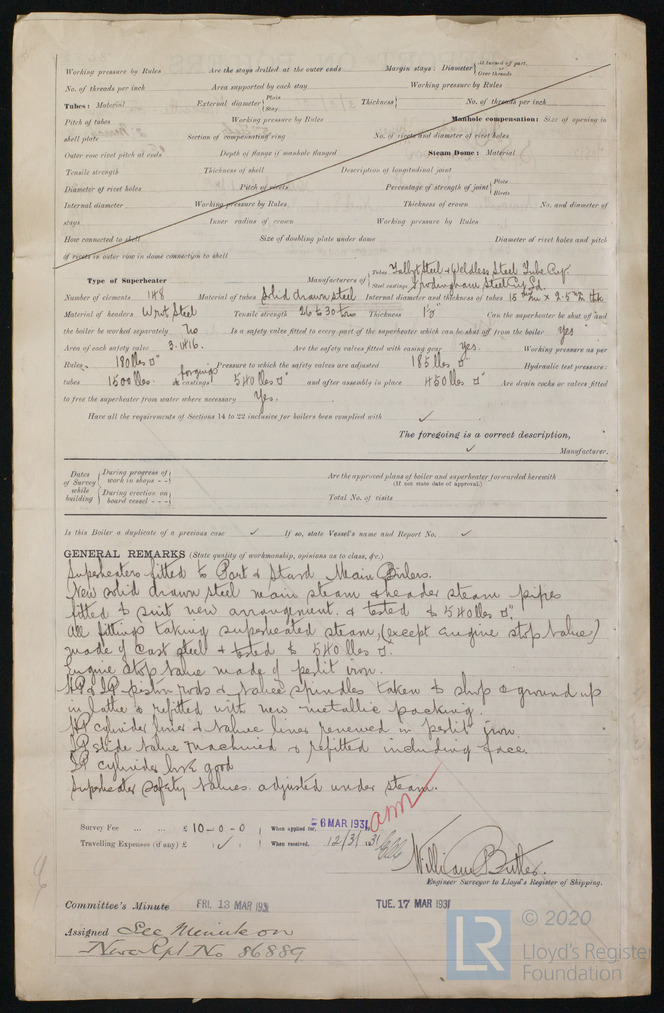 Working pressure by Rules Are the stays drilled at the outer ends Margin stays: Diameter { At turned off part, Over threads
No. of threads per inch Area supported by each stay Working pressure by Rules
Tubes: Material External diameter { Plain Stay Thickness { No. of threads per inch
Pitch of tubes Working pressure by Rules Manhole compensation: Size of opening in
shell plate Section of compensating ring No. of rivets and diameter of rivet holes
Outer row rivet pitch at ends Depth of flange if manhole flanged Steam Dome: Material
Tensile strength Thickness of shell Description of longitudinal joint
Diameter of rivet holes Pitch of rivets Percentage of strength of joint { Plate Rivets
Internal diameter Working pressure by Rules Thickness of crown No. and diameter of
stays Inner radius of crown Working pressure by Rules
How connected to shell Size of doubling plate under dome Diameter of rivet holes and pitch
of rivets in outer row in dome connection to shell
Type of Superheater Manufacturers of { Tubes Steel & Weldless Steel Tube Coy.
Steel castings Frodingham Steel Coy Ld.
Number of elements 148 Material of tubes Solid drawn steel Internal diameter and thickness of tubes 15 m/m x 2.5 m/m thk
Material of headers Wrot Steel Tensile strength 26 to 30 tons Thickness Can the superheater be shut off and
the boiler be worked separately No Is a safety valve fitted to every part of the superheater which can be shut off from the boiler yes
Area of each safety valve 3.1416. Are the safety valves fitted with easing gear yes. Working pressure as per
Rules 180 lbs □" Pressure to which the safety valves are adjusted 185 lbs □" Hydraulic test pressure:
tubes 1500 lbs. forgings & castings 540 lbs □" and after assembly in place 450 lbs □" Are drain cocks or valves fitted
to free the superheater from water where necessary Yes.
Have all the requirements of Sections 14 to 22 inclusive for boilers been complied with ✓
The foregoing is a correct description,
✓ Manufacturer.
Dates of Survey while building { During progress of work in shops - - } Are the approved plans of boiler and superheater forwarded herewith
(If not state date of approval.)
{ During erection on board vessel - - - } Total No. of visits
Is this Boiler a duplicate of a previous case ✓ If so, state Vessel's name and Report No. ✓
GENERAL REMARKS (State quality of workmanship, opinions as to class, &c.)
Superheaters fitted to Port & Starbd Main Boilers.
New solid drawn steel main steam & header steam pipes
fitted to suit new arrangement. & tested to 540 lbs □".
All fittings taking superheated steam, (except engine stop valve)
made of cast steel & tested to 540 lbs □".
Engine stop valve made of perlit iron.
HP & IP piston rods & valve spindles taken to shop & ground up
in lathe & refitted with new metallic packing.
HP cylinder liner & valve liner renewed in perlit iron.
IP slide valve machined & refitted including face.
IP cylinder bore good
Superheater safety valves adjusted under steam.
Survey Fee ... ... £ 10-0-0 When applied for, -6 MAR 1931
Travelling Expenses (if any) £ ✓ When received, 12/3/1931
William Butler.
Engineer Surveyor to Lloyd's Register of Shipping.
Committee's Minute FRI. 13 MAR 1931 TUE. 17 MAR 1931
Assigned See Minute on
Nwc Rpt No 86889
LR © 2020
Lloyd's Register
Foundation